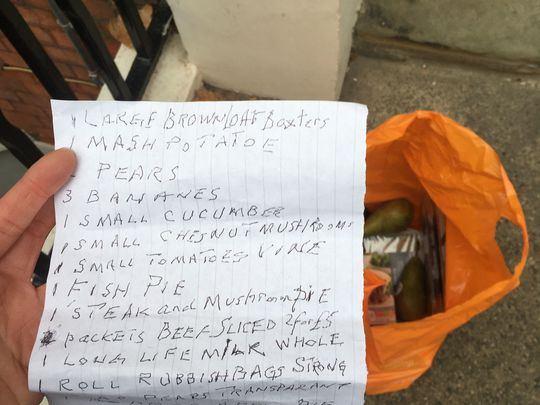 1 LARGE BROWN LOAF Baxters
1 MASH POTATOE
PEARS
3 BANANES
1 SMALL CUCUMBER
1 SMALL CHESNUT MUSHROOMS
1 SMALL TOMATOES VINE
1 FISH PIE
1 STEAK and MUShroom PIE
PACKETS BEEF SLICED 2 for £5
1 LONG LIFE MILK WHOLE
1 ROLL RUBBISH BAGS STRONG
PEARS TRANSPARANT